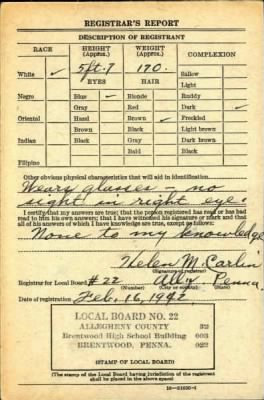 REGISTRAR'S REPORT
DESCRIPTION OF REGISTRANT
RACE HEIGHT (Approx.) WEIGHT (Approx.) COMPLEXION
5 ft. 7 170. Sallow
White ✓ EYES HAIR Light
Negro Blue ✓ Blonde Ruddy
Gray Red Dark ✓
Oriental Hazel Brown ✓ Freckled
Brown Black Light brown
Indian Black Gray Dark brown
Bald Black
Filipino
Other obvious physical characteristics that will aid in identification
Wears glasses - no
sight in right eye.
I certify that my answers are true; that the person registered has read or has had
read to him his own answers; that I have witnessed his signature or mark and that
all of his answers of which I have knowledge are true, except as follows:
None to my knowledge
Helen M. Carlin
(Signature of registrar)
Registrar for Local Board #22 Penna.
Date of registration Feb. 16, 1942
LOCAL BOARD NO. 22
ALLEGHENY COUNTY 32
Brentwood High School Building 003
BRENTWOOD, PENNA. 022
(STAMP OF LOCAL BOARD)
(The stamp of the Local Board having jurisdiction of the registrant
shall be placed in the above space)